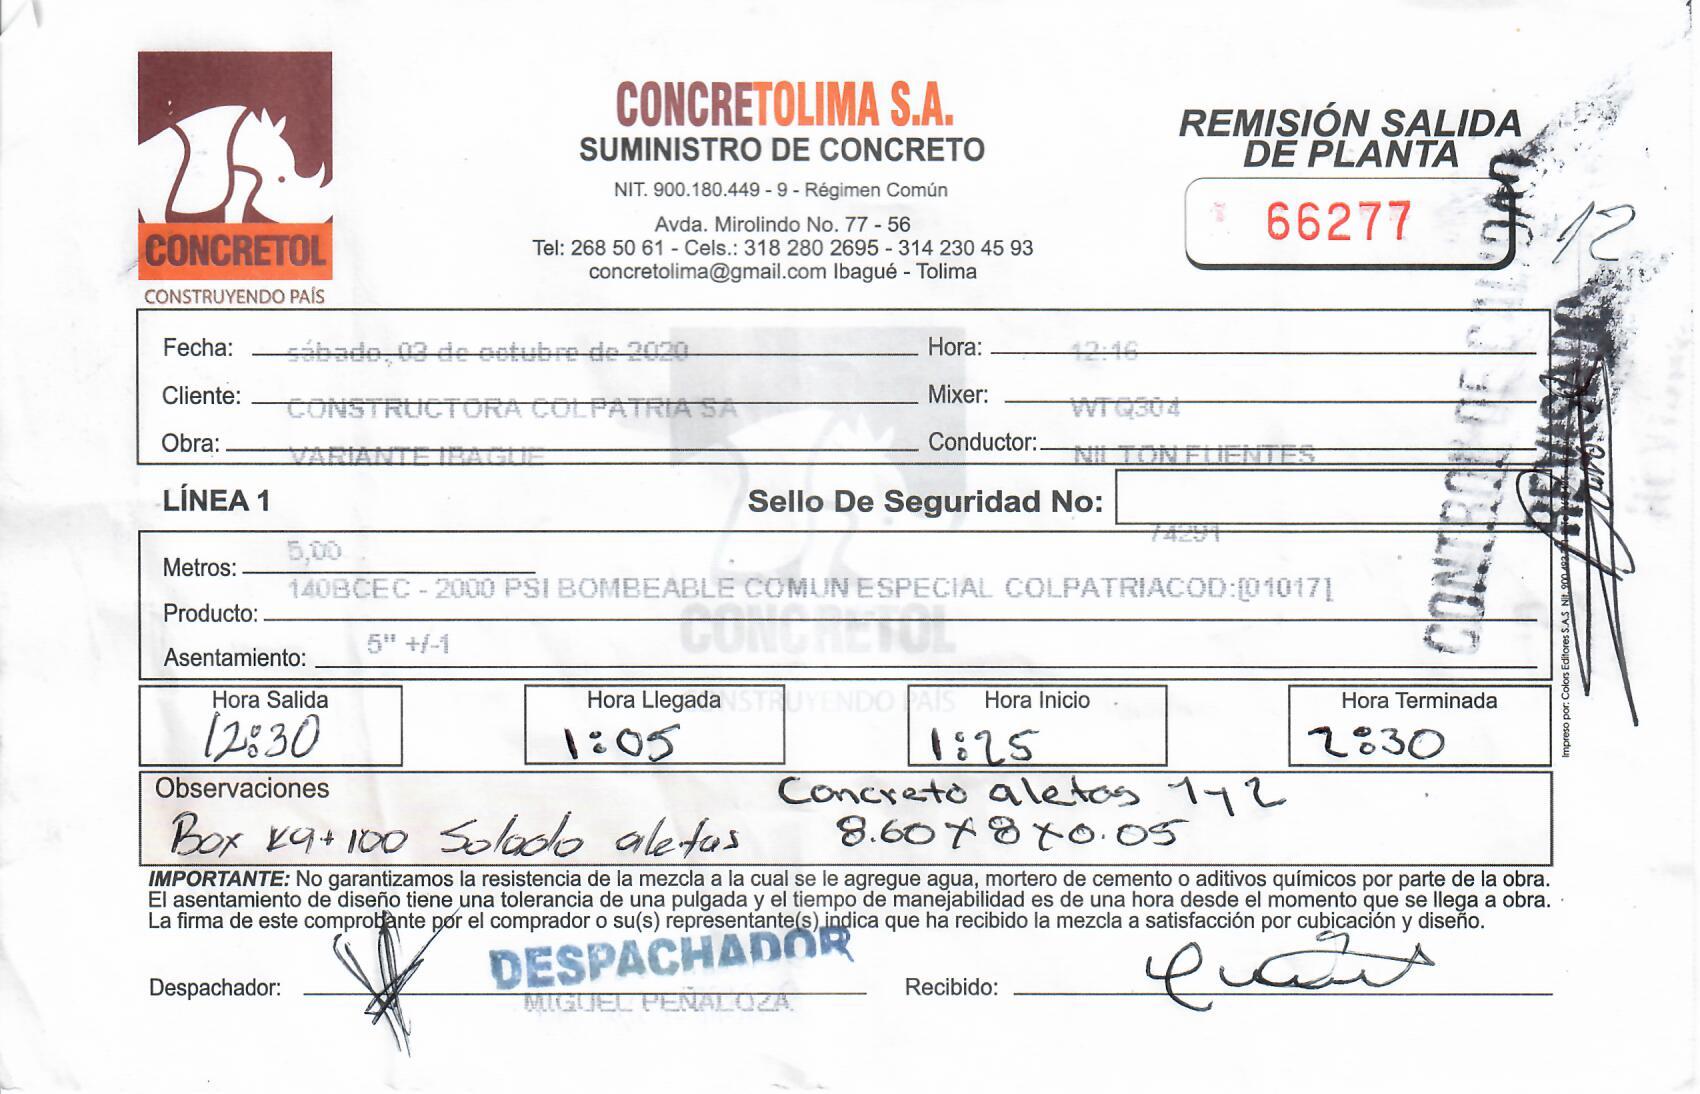 CONCRETOL
CONSTRUYENDO PAÍS
CONCRETOLIMA S.A.
SUMINISTRO DE CONCRETO
NIT. 900.180.449 - 9 - Régimen Común
Avda. Mirolindo No. 77 - 56
Tel: 268 50 61 - Cels.: 318 280 2695 - 314 230 45 93
concretolima@gmail.com Ibagué - Tolima
REMISIÓN SALIDA
DE PLANTA
66277
12
Fecha: sábado, 03 de octubre de 2020 Hora: 12:16
Cliente: CONSTRUCTORA COLPATRIA SA Mixer: WTQ304
Obra: VARIANTE IBAGUE Conductor: NILTON FUENTES
LÍNEA 1 Sello De Seguridad No: 74291
Metros: 5,00
Producto: 140BCEC - 2000 PSI BOMBEABLE COMUN ESPECIAL COLPATRIACOD:[01017]
Asentamiento: 5" +/-1
CONCRETOL
CONSTRUYENDO PAÍS
Hora Salida Hora Llegada Hora Inicio Hora Terminada
12:30 1:05 1:25 2:30
Observaciones Concreto aletas 1 y 2
Box K9+100 Solado aletas 8.60 x 8 x 0.05
IMPORTANTE: No garantizamos la resistencia de la mezcla a la cual se le agregue agua, mortero de cemento o aditivos químicos por parte de la obra.
El asentamiento de diseño tiene una tolerancia de una pulgada y el tiempo de manejabilidad es de una hora desde el momento que se llega a obra.
La firma de este comprobante por el comprador o su(s) representante(s) indica que ha recibido la mezcla a satisfacción por cubicación y diseño.
DESPACHADOR
Despachador: MIGUEL PEÑALOZA Recibido:
CONTROL DE CALIDAD
REVISADO
Impreso por: Colors Editores S.A.S Nit.